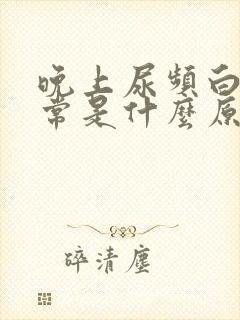 晚上尿頻白
常是什麼原
碎清塵